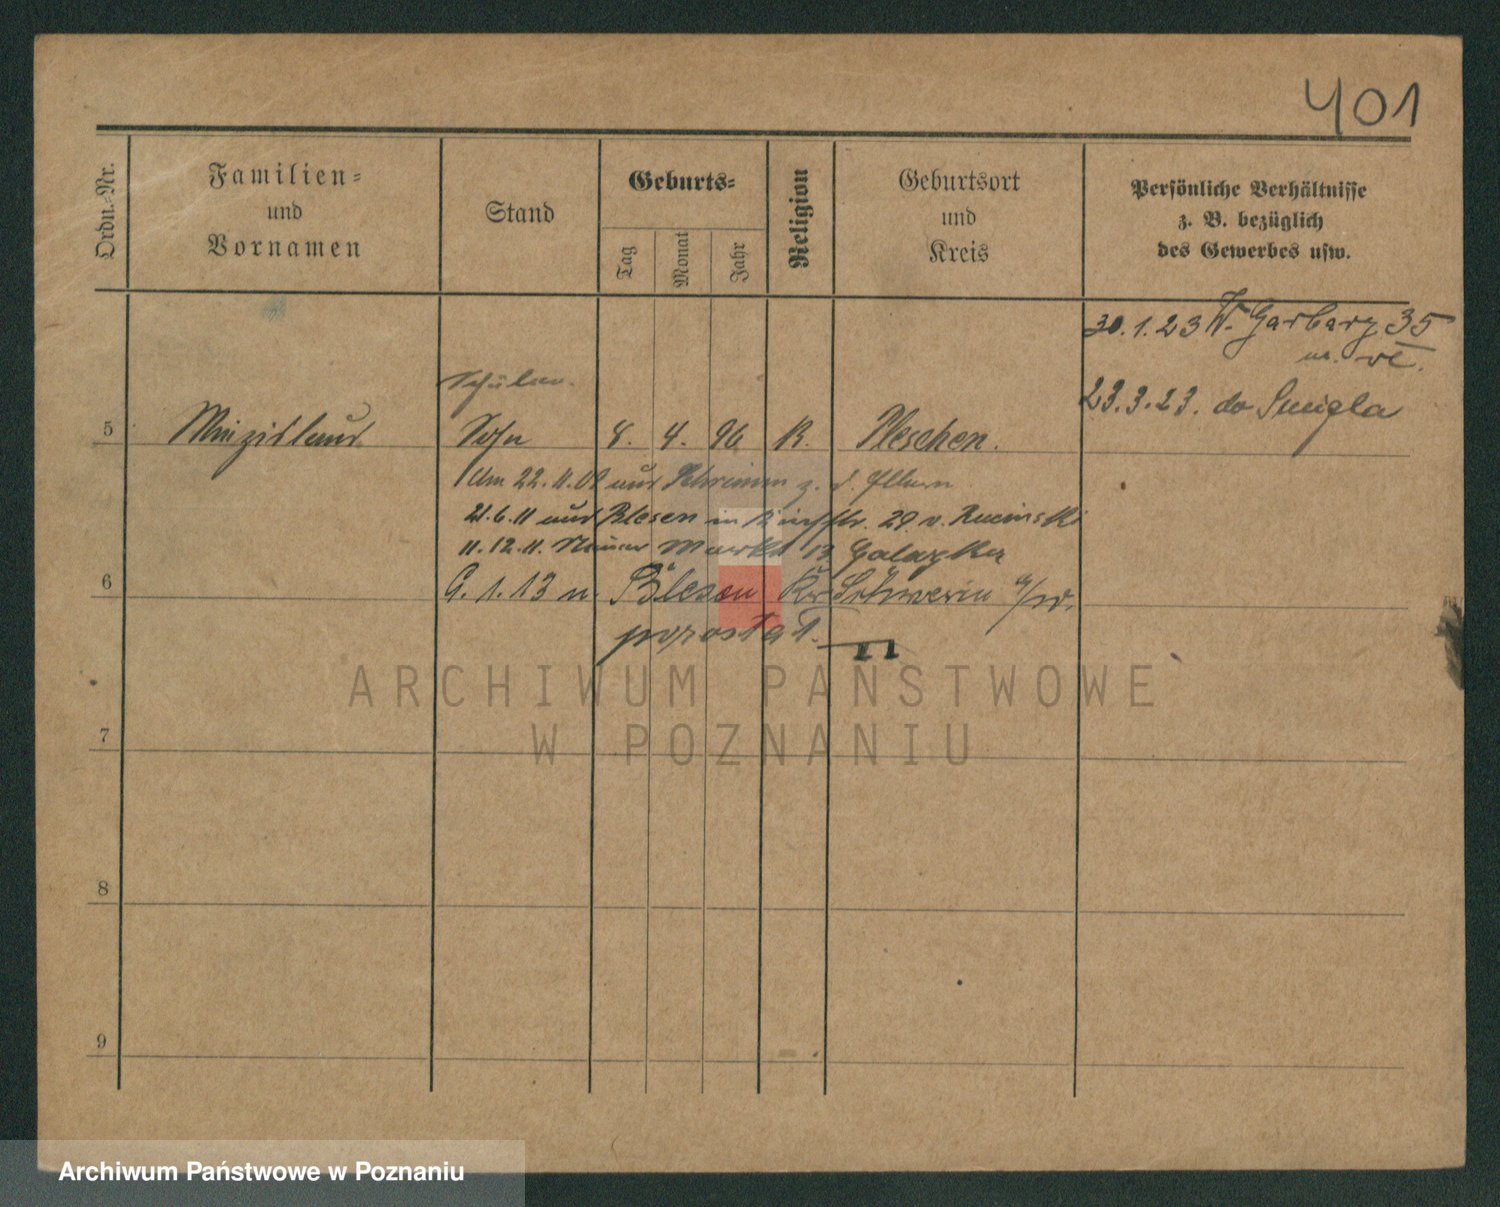 401
Ordn.-Nr.
Familien-
und
Vornamen
Stand
Geburts-
Tag
Monat
Jahr
Religion
Geburtsort
und
Kreis
Persönliche Verhältnisse
z. B. bezüglich
des Gewerbes usw.
30.1.23 W. Garbary 35
23.3.23. do Smigla
Schüler.
5 Sohn 8. 4. 96 K. Pleschen.
Am 22.11.09 aus Schrimm z. d. Eltern
21.6.11 aus Blesen in 29 v. Rucinski
11.12.11. Neuer Markt 13
6 G. 1.13 n. Blesen Kr. Schwerin a/W.
pozostał.
ARCHIWUM PAŃSTWOWE
W POZNANIU
7
8
9
Archiwum Państwowe w Poznaniu